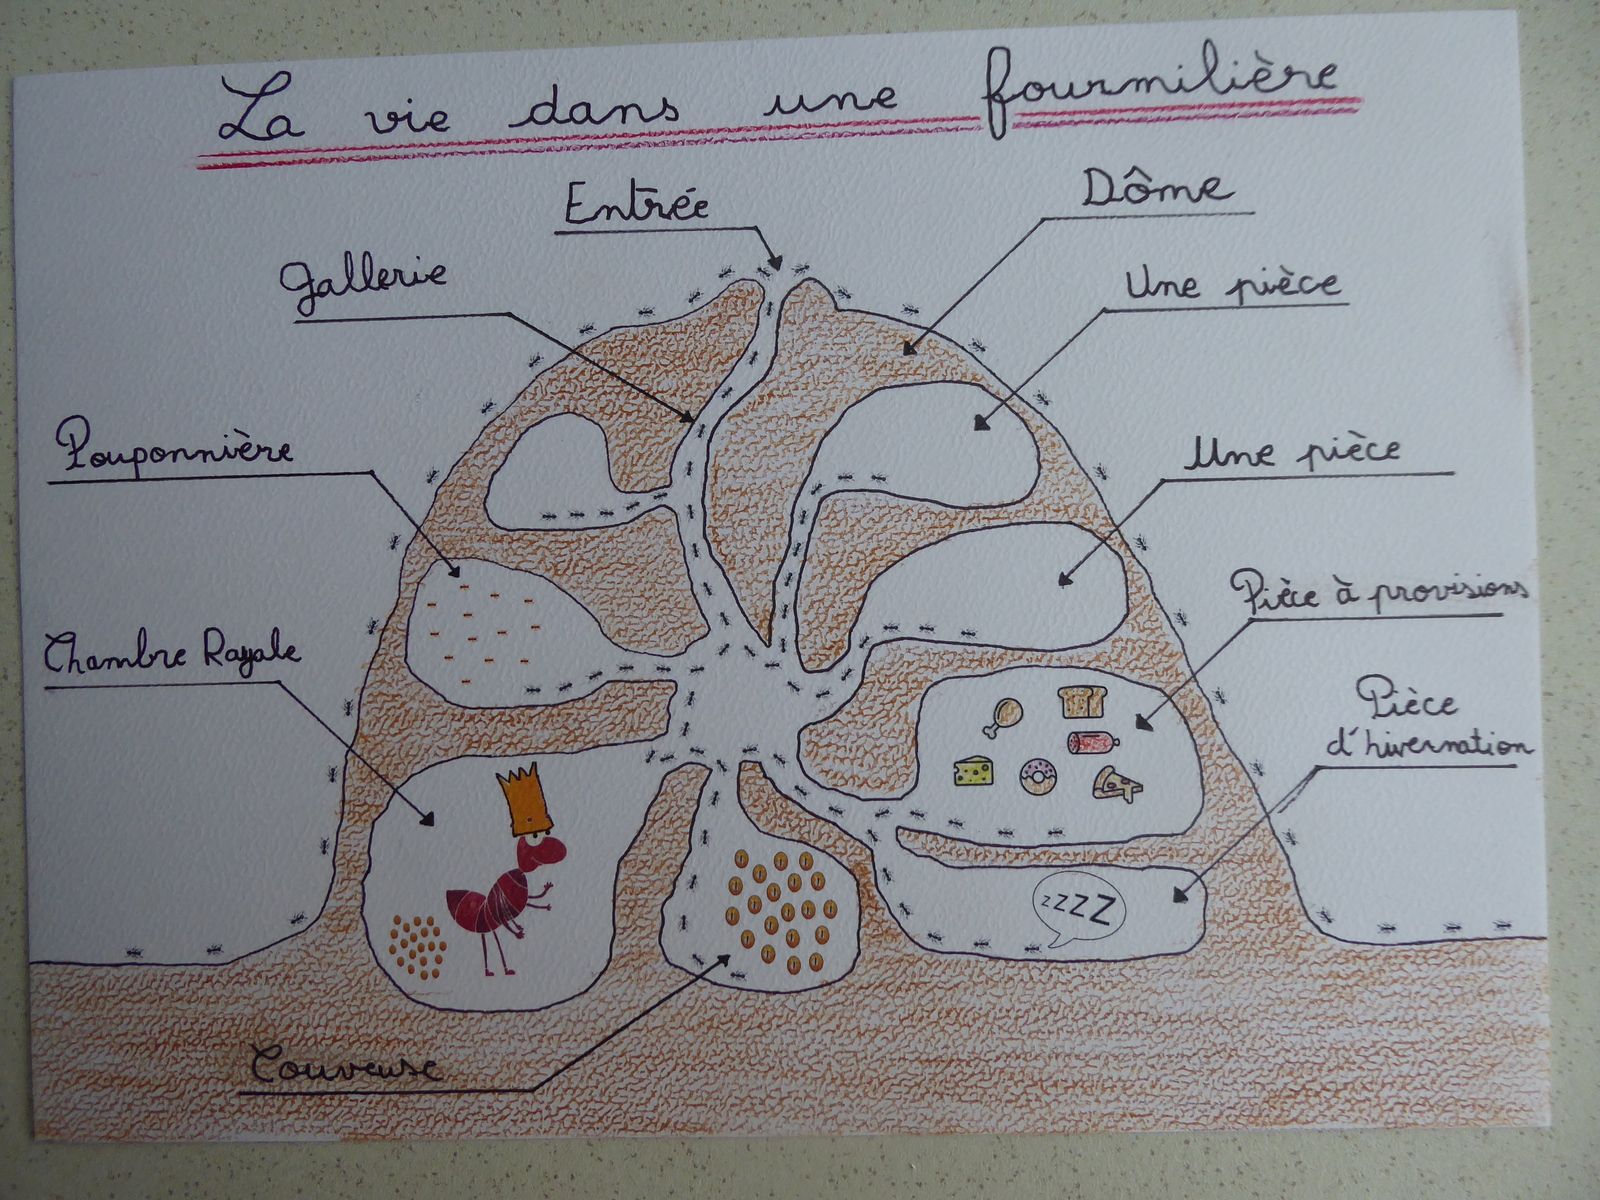 La vie dans une fourmilière
Entrée
Dôme
Gallerie
Une pièce
Pouponnière
Une pièce
Pièce à provisions
Chambre Royale
Pièce
d'hivernation
zzZZ
Couveuse